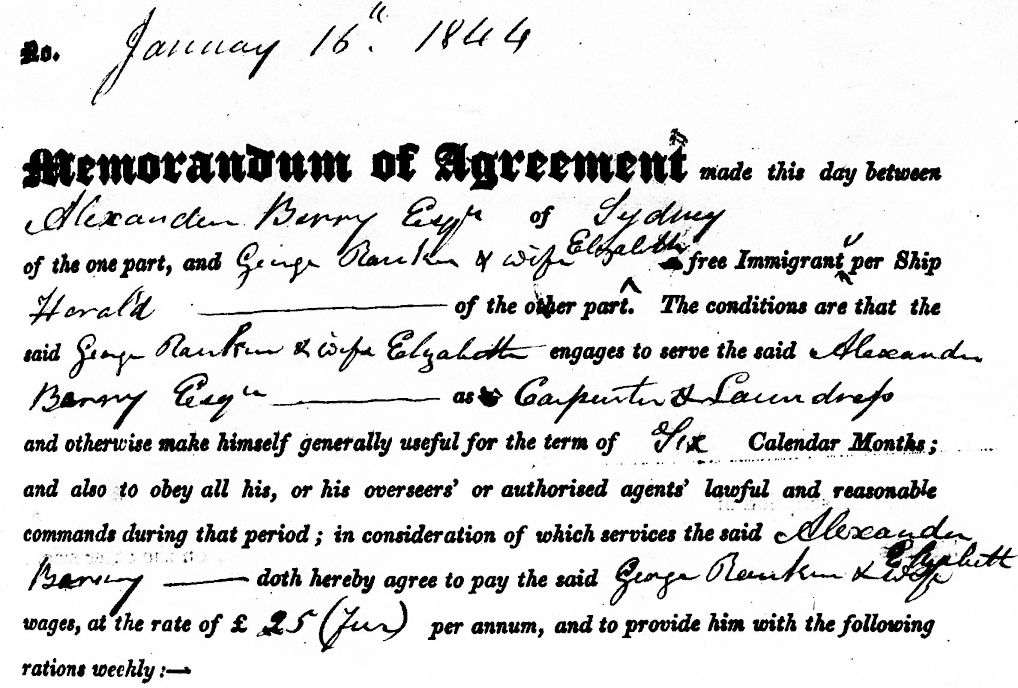 No. January 16". 1844
Memorandum of Agreement made this day between
Alexander Berry Esqr of Sydney
of the one part, and George Rankin & wife Elizabeth free Immigrants per Ship
Herald of the other part. The conditions are that the
said George Rankin & wife Elizabeth engages to serve the said Alexander
Berry Esqre as Carpenter & Laundress
and otherwise make himself generally useful for the term of Six Calendar Months;
and also to obey all his, or his overseers' or authorised agents' lawful and reasonable
commands during that period; in consideration of which services the said Alexander
Berry doth hereby agree to pay the said George Rankin & wife Elizabeth
wages, at the rate of £ 25 per annum, and to provide him with the following
rations weekly:—